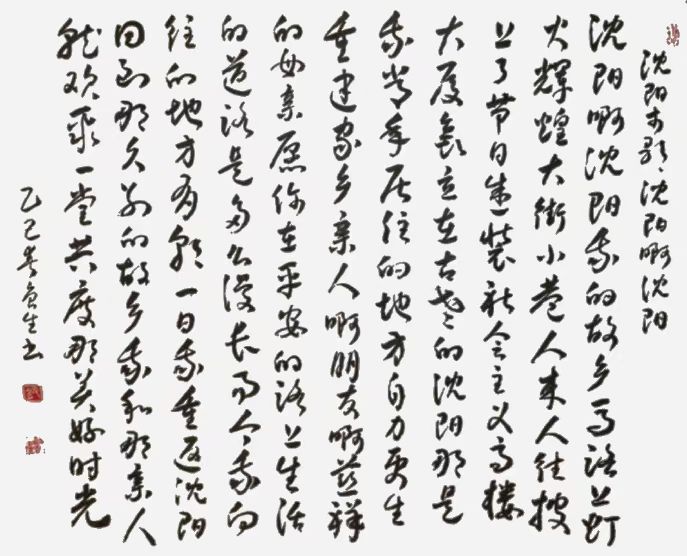 沈阳市歌·沈阳啊沈阳
沈阳啊沈阳我的故乡马路上灯
火辉煌大街小巷人来人往披
上了节日盛装社会主义高楼
大厦矗立在古老的沈阳那是
我当年居住的地方自力更生
重建家乡亲人啊朋友啊慈祥
的母亲愿你在平安的路上生活
的道路是多么漫长而今我向
往的地方有朝一日我重返沈阳
回到那久别的故乡我和那亲人
就欢聚一堂共度那美好时光
乙巳春生书